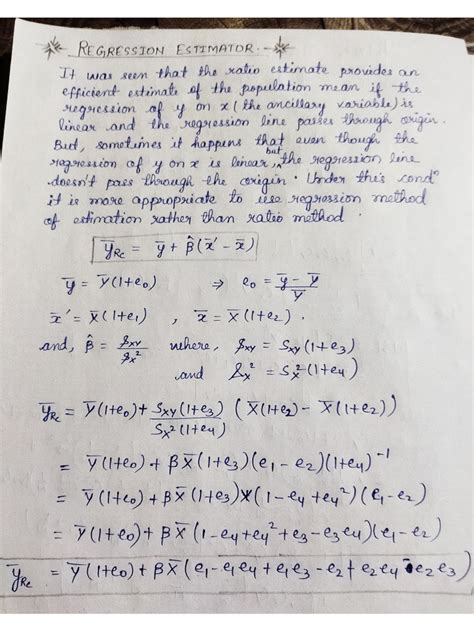 REGRESSION ESTIMATOR.
It was seen that the ratio estimate provides an
efficient estimate of the population mean if the
regression of y on x (the ancillary variable) is
linear and the regression line passes through origin.
But, sometimes it happens that even though the
regression of y on x is linear, but the regression line
doesn't pass through the origin. Under this condⁿ
it is more appropriate to use regression method
of estimation rather than ratio method.
ȳ_Rc = ȳ + β̂(x̄' - x̄)
ȳ = Ȳ(1+e₀) ⇒ e₀ = (ȳ - Ȳ)/Ȳ
x̄' = X̄(1+e₁) , x̄ = X̄(1+e₂).
and, β̂ = s_xy/s_x² where, s_xy = S_xy(1+e₃)
and s_x² = S_x²(1+e₄)
ȳ_Rc = Ȳ(1+e₀) + S_xy(1+e₃)/S_x²(1+e₄) (X̄(1+e₁) - X̄(1+e₂))
= Ȳ(1+e₀) + βX̄(1+e₃)(e₁-e₂)(1+e₄)⁻¹
= Ȳ(1+e₀) + βX̄(1+e₃)(1-e₄+e₄²)(e₁-e₂)
= Ȳ(1+e₀) + βX̄(1-e₄+e₄²+e₃-e₃e₄)(e₁-e₂)
ȳ_Rc = Ȳ(1+e₀) + βX̄(e₁-e₁e₄+e₁e₃-e₂+e₂e₄-e₂e₃)